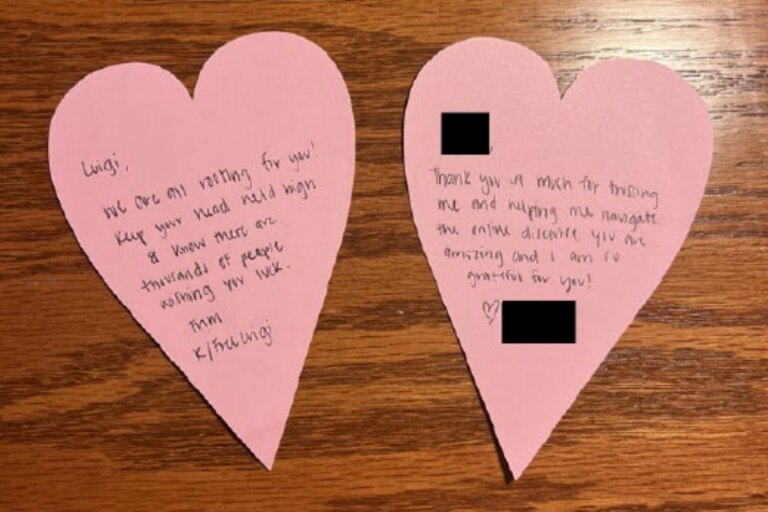 Luigi,
we are all rooting for you!
Keep your head held high
& know there are
thousands of people
wishing you luck.
From
r/FreeLuigi
Thank you so much for trusting
me and helping me navigate
the online discourse. you are
amazing and I am so
grateful for you!
♡